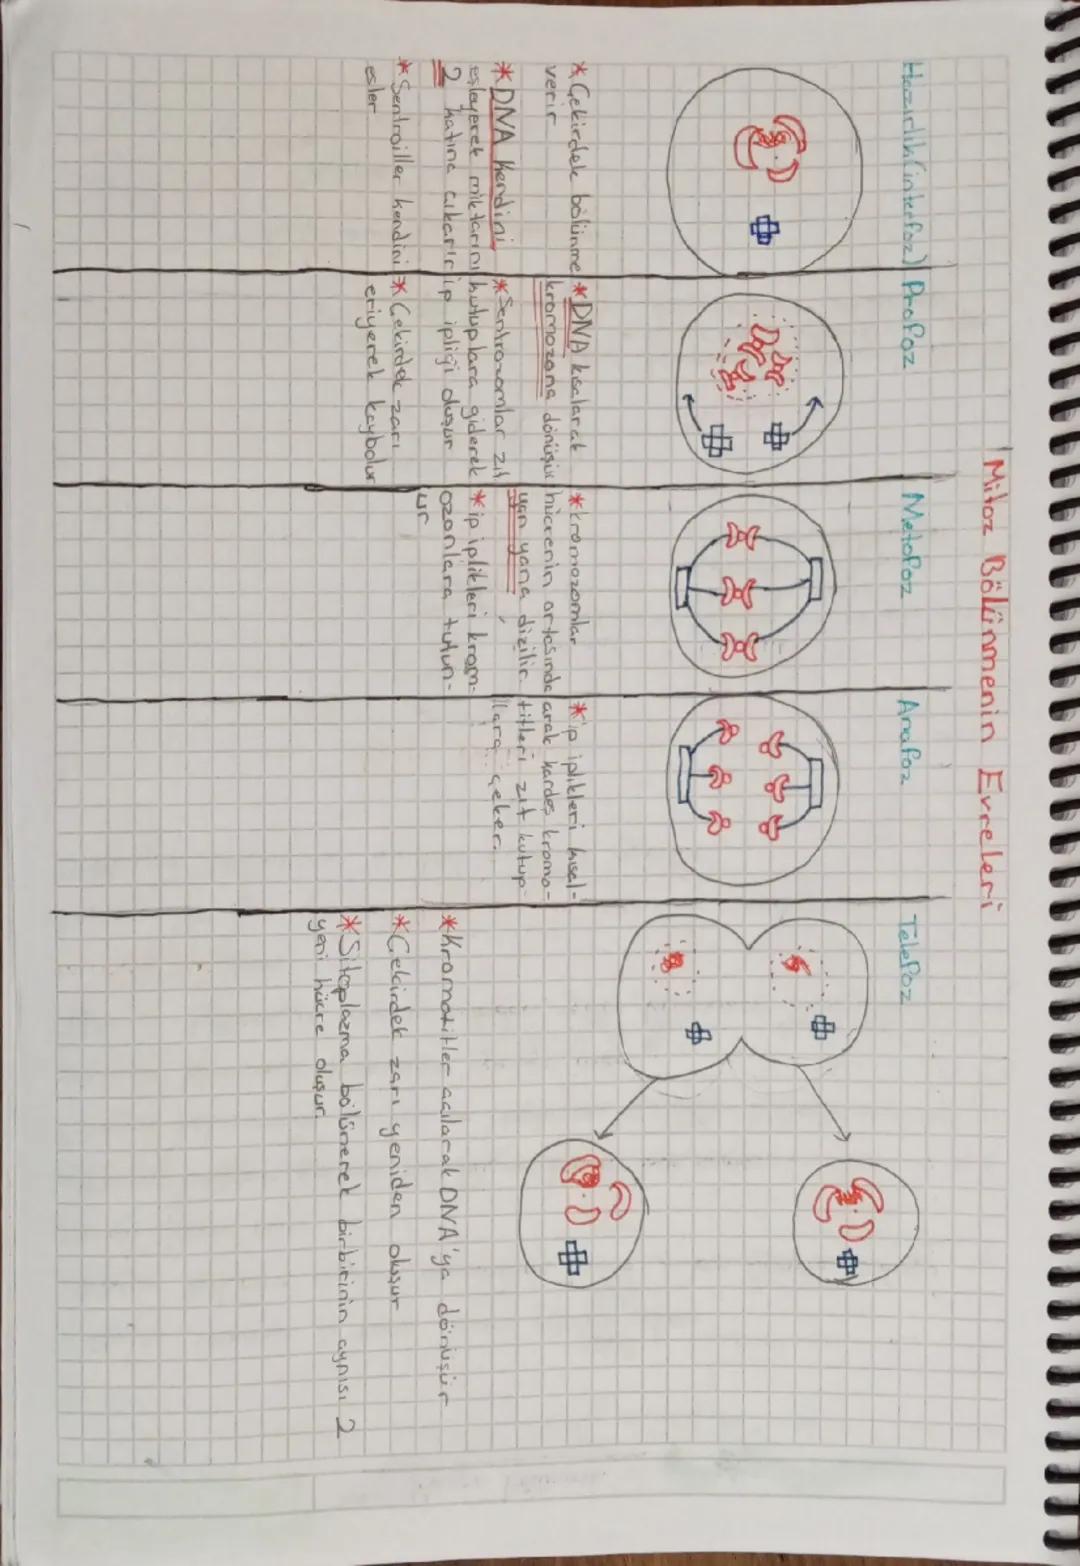 Mitoz Bölünmenin Evreleri
Hazırlık(interfaz)
* Çekirdek bölünme
verir
* DNA kendini
eşleyerek miktarını
2 katına çıkarır
* Sentroiller kendini
eşler
Profaz
* DNA kısalarak
kromozoma dönüşür
* Sentrozomlar zıt
kutuplara giderek
ip ipliği oluşur
* Çekirdek zarı
eriyerek kaybolur
Metafaz
* kromozomlar
hücrenin ortasında
yan yana dizilir.
* ip iplikleri krom-
ozonlara tutun-
ur
Anafaz
* ip iplikleri kısal-
arak kardeş kroma-
titleri zıt kutup-
llara çeker.
Telefaz
* Kromatitler açılarak DNA'ya dönüşür
* Çekirdek zarı yeniden oluşur
* Sitoplazma bölünerek birbirinin aynısı 2
yeni hücre oluşur.